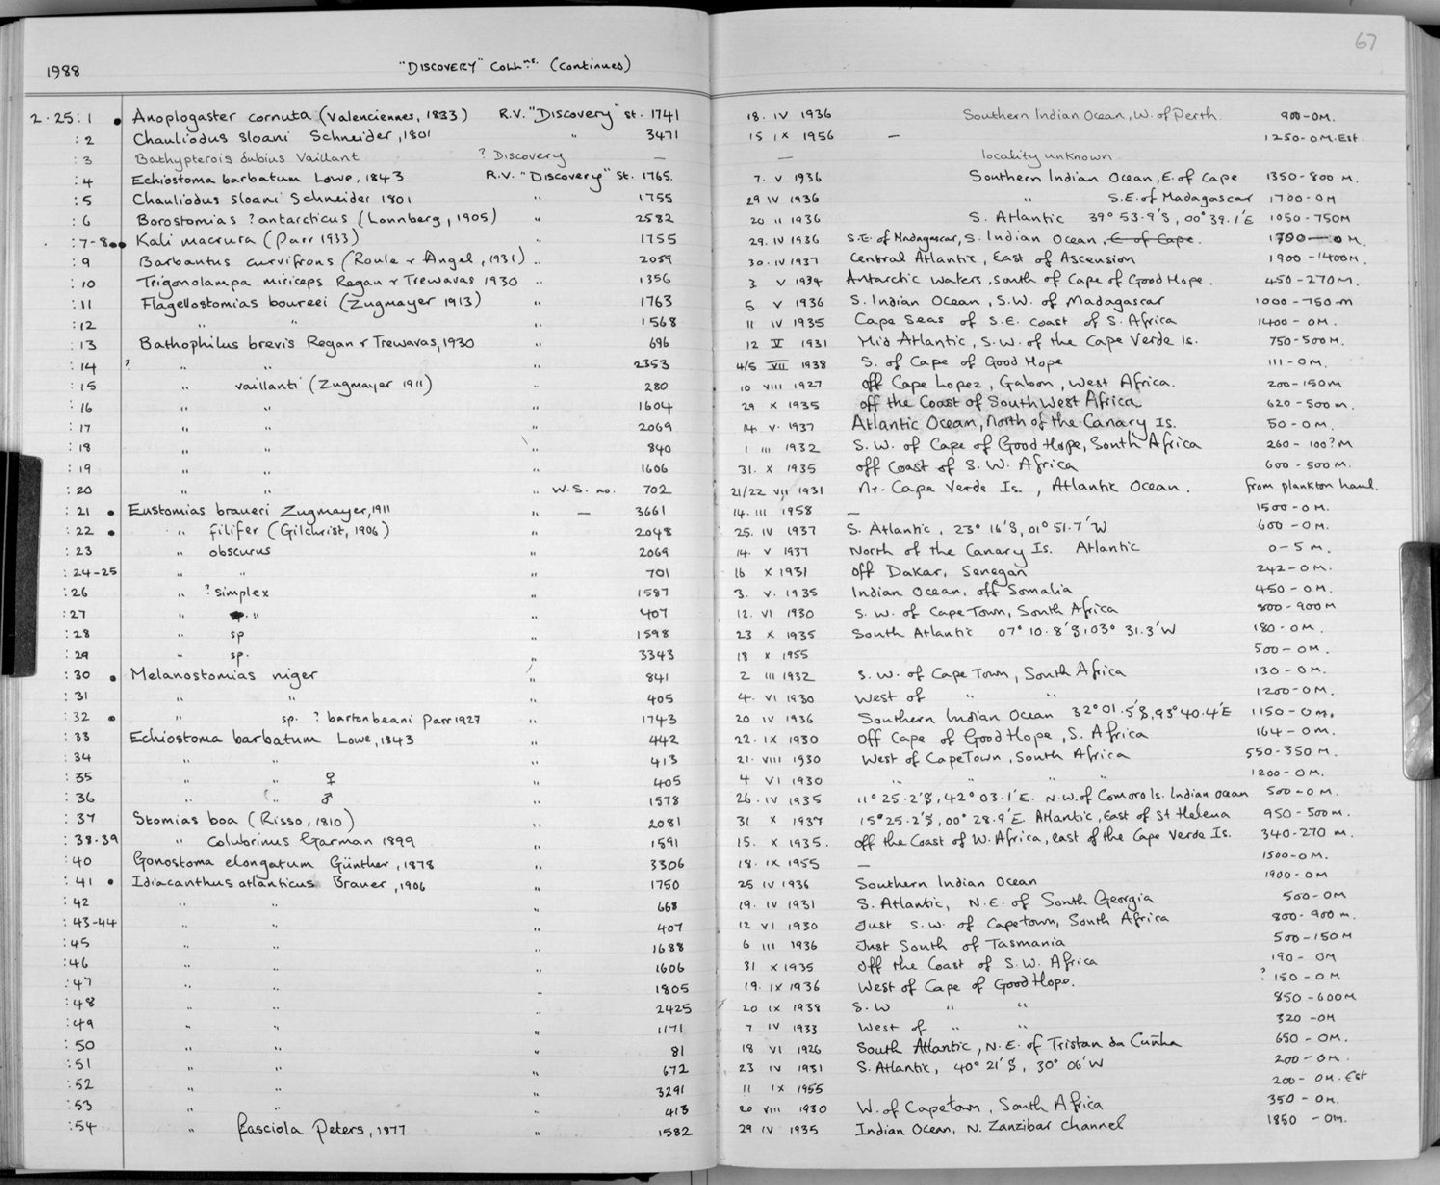 67
1988 "DISCOVERY" Colln.ns. (continues)
2.25:1 • Anoplogaster cornuta (Valenciennes, 1833) R.V. "Discovery" st. 1741 18. IV 1936 Southern Indian Ocean, W. of Perth. 900-0M.
:2 Chauliodus sloani Schneider, 1801 " 3471 15 IX 1956 — 1250-0M.Est.
:3 Bathypterois dubius Vaillant ? Discovery — — locality unknown
:4 Echiostoma barbatum Lowe, 1843 R.V. "Discovery" St. 1765. 7. V 1936 Southern Indian Ocean, E. of Cape 1350-800 M.
:5 Chauliodus sloani Schneider 1801 " 1755 29 IV 1936 " S.E. of Madagascar 1700-0M
:6 Borostomias ?antarcticus (Lonnberg, 1905) " 2582 20 II 1936 S. Atlantic 39° 53.9'S, 00° 39.1'E 1050-750M
:7-8 •• Kali macrura (Parr 1933) " 1755 29. IV 1936 S.E. of Madagascar, S. Indian Ocean, E of Cape. 1700-0M.
:9 Barbantus curvifrons (Roule & Angel, 1931) " 2059 30. IV 1937 Central Atlantic, East of Ascension 1900-1400M.
:10 Trigonolampa miriceps Regan & Trewavas 1930 " 1356 3 V 1934 Antarctic Waters, South of Cape of Good Hope. 450-270M.
:11 Flagellostomias boureei (Zugmayer 1913) " 1763 5 V 1936 S. Indian Ocean, S.W. of Madagascar 1000-750-M
:12 " " " 1568 11 IV 1935 Cape Seas of S.E. coast of S. Africa 1400-0M.
:13 Bathophilus brevis Regan & Trewavas, 1930 " 696 12 V 1931 Mid Atlantic, S.W. of the Cape Verde Is. 750-500M.
:14 ? " " " 2353 4/5 VII 1938 S. of Cape of Good Hope 111-0M.
:15 " vaillanti (Zugmayer 1911) " 280 10 VIII 1927 off Cape Lopez, Gabon, West Africa. 200-150M
:16 " " " 1604 29 X 1935 off the Coast of South West Africa 620-500 M.
:17 " " " 2069 14. V. 1937 Atlantic Ocean, North of the Canary Is. 50-0M.
:18 " " " 840 1 III 1932 S.W. of Cape of Good Hope, South Africa 260-100?M
:19 " " " 1606 31. X 1935 off Coast of S.W. Africa 600-500M.
:20 " " " W.S. no. 702 21/22 VII 1931 Nr. Cape Verde Is., Atlantic Ocean. from plankton haul.
:21 • Eustomias braueri Zugmayer, 1911 " — 3661 14. III 1958 — 1500-0M.
:22 • " filifer (Gilchrist, 1906) " 2048 25. IV 1937 S. Atlantic, 23° 16'S, 01° 51.7'W 600-0M.
:23 " obscurus " 2069 14. V 1937 North of the Canary Is. Atlantic 0-5 M.
:24-25 " " " 701 16 X 1931 off Dakar, Senegan 242-0M.
:26 " ?simplex " 1587 3. V. 1935 Indian Ocean, off Somalia 450-0M.
:27 " " " 407 12. VI 1930 S.W. of Cape Town, South Africa 800-900M
:28 " sp " 1598 23 X 1935 South Atlantic 07° 10.8'S, 03° 31.3'W 180-0M.
:29 " sp. " 3343 18 X 1955 500-0M.
:30 • Melanostomias niger " 841 2 III 1932 S.W. of Cape Town, South Africa 130-0M.
:31 " " " 405 4. VI 1930 West of " " 1200-0M.
:32 • " sp. ? bartonbeani Parr 1927 " 1743 20 IV 1936 Southern Indian Ocean 32° 01.5'S, 93° 40.4'E 1150-0M.
:33 Echiostoma barbatum Lowe, 1843 " 442 22. IX 1930 Off Cape of Good Hope, S. Africa 164-0M.
:34 " " " 413 21. VIII 1930 West of Cape Town, South Africa 550-350M.
:35 " " ♀ " 405 4 VI 1930 " " " 1200-0M.
:36 " " ♂ " 1578 26. IV 1935 11° 25.2'S, 42° 03.1'E. N.W. of Comoro Is. Indian Ocean 500-0M.
:37 Stomias boa (Risso, 1810) " 2081 31 X 1937 15° 25.2'S, 00° 28.9'E. Atlantic, East of St Helena 950-500M.
:38-39 " Colubrinus Garman 1899 " 1591 15. X 1935. off the Coast of W. Africa, east of the Cape Verde Is. 340-270 M.
:40 Gonostoma elongatum Günther, 1878 " 3306 18. IX 1955 — 1500-0M.
:41 • Idiacanthus atlanticus Brauer, 1906 " 1750 25 IV 1936 Southern Indian Ocean 1900-0M.
:42 " " " 668 19. IV 1931 S. Atlantic, N.E. of South Georgia 500-0M
:43-44 " " " 407 12 VI 1930 Just S.W. of Capetown, South Africa 800-900M.
:45 " " " 1688 6 III 1936 Just South of Tasmania 500-150M
:46 " " " 1606 31 X 1935 Off the Coast of S.W. Africa 190-0M
:47 " " " 1805 19. IX 1936 West of Cape of Good Hope. ? 150-0M
:48 " " " 2425 20 IX 1938 S.W " " 850-600M
:49 " " " 1171 7 IV 1933 West of " " 320-0M
:50 " " " 81 18 VI 1926 South Atlantic, N.E. of Tristan da Cuñha 650-0M.
:51 " " " 672 23 IV 1931 S. Atlantic, 40° 21'S, 30° 06'W 200-0M.
:52 " " " 3291 11 IX 1955 200-0M. Est
:53 " " " 413 20 VIII 1930 W. of Capetown, South Africa 350-0M.
:54 " fasciola Peters, 1877 " 1582 29 IV 1935 Indian Ocean, N. Zanzibar Channel 1850-0M.